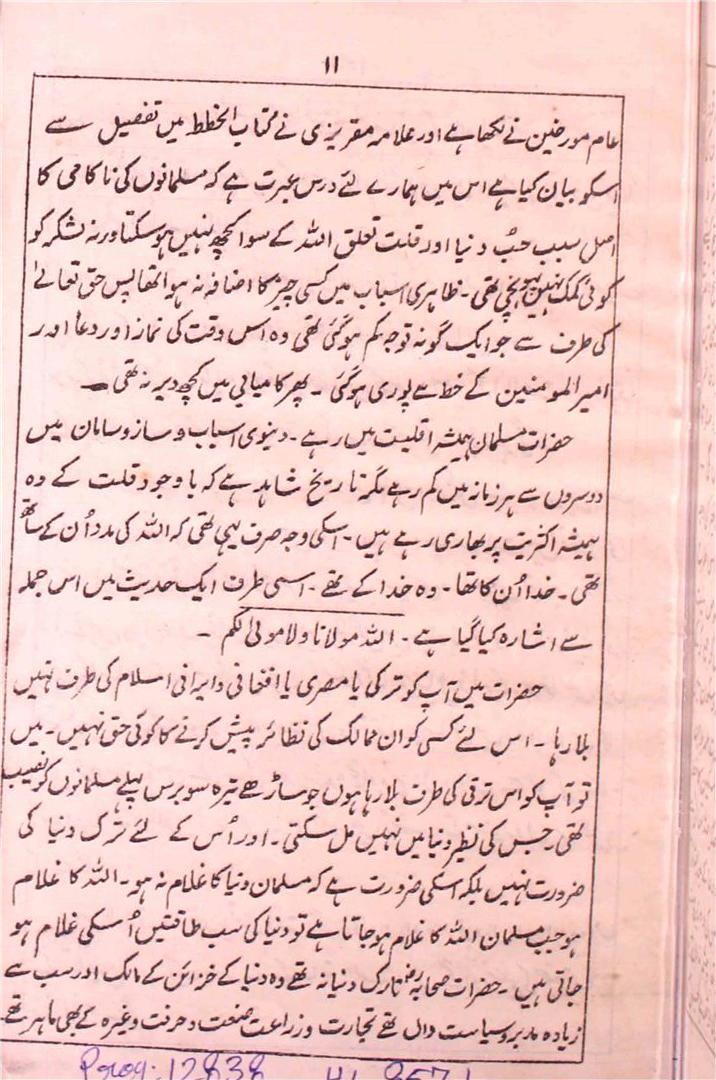 ۱۱
عام مورخین نے لکھا ہے اور علامہ مقریزی نے کتاب الخطط میں تفصیل سے
اسکو بیان کیا ہے اس میں ہمارے لئے درس عبرت ہے کہ مسلمانوں کی ناکامی کا
اصل سبب حبِ دنیا اور قلت تعلق اللہ کے سوا کچھ نہیں ہو سکتا ورنہ لشکر کو
کوئی کمک نہیں پہونچی تھی۔ ظاہری اسباب میں کسی چیز کا اضافہ نہ ہوا تھا پس حق تعالےٰ
کی طرف سے جو ایک گونہ توجہ کم ہو گئی تھی وہ اس وقت کی نماز اور دعا اور
امیر المومنین کے خط سے پوری ہو گئی ۔ پھر کامیابی میں کچھ دیر نہ تھی ۔
حضرات مسلمان ہمیشہ اقلیت میں رہے ۔ دنیوی اسباب و ساز و سامان میں
دوسروں سے ہر زمانہ میں کم رہے مگر تاریخ شاہد ہے کہ باوجود قلت کے وہ
ہمیشہ اکثریت پر بھاری رہے ہیں ۔ اسکی وجہ صرف یہی تھی کہ اللہ کی مدد اُن کے ساتھ
تھی ۔ خدا اُن کا تھا ۔ وہ خدا کے تھے ۔ اسی طرف ایک حدیث میں اس جملہ
سے اشارہ کیا گیا ہے ۔ اللہ مولانا ولا مولیٰ لکم ۔
حضرات میں آپ کو ترکی یا مصری یا افغانی و ایرانی اسلام کی طرف نہیں
بلا رہا ۔ اس لئے کسی کو ان ممالک کی نظائر پیش کرنے کا کوئی حق نہیں ۔ میں
تو آپ کو اس ترقی کی طرف بلا رہا ہوں جو ساڑھے تیرہ سو برس پہلے مسلمانوں کو نصیب
تھی ۔ جس کی نظیر دنیا میں نہیں مل سکتی ۔ اور اُس کے لئے ترک دنیا کی
ضرورت نہیں بلکہ اسکی ضرورت ہے کہ مسلمان دنیا کا غلام نہ ہو ۔ اللہ کا غلام
ہو جب مسلمان اللہ کا غلام ہو جاتا ہے تو دنیا کی سب طاقتیں اُسکی غلام ہو
جاتی ہیں ۔ حضرات صحابہؓ تارک دنیا نہ تھے وہ دنیا کے خزائن کے مالک اور سب سے
زیادہ مدبر و سیاست داں تھے تجارت و زراعت صنعت و حرفت وغیرہ کے بھی ماہر تھے
Prog: 12838